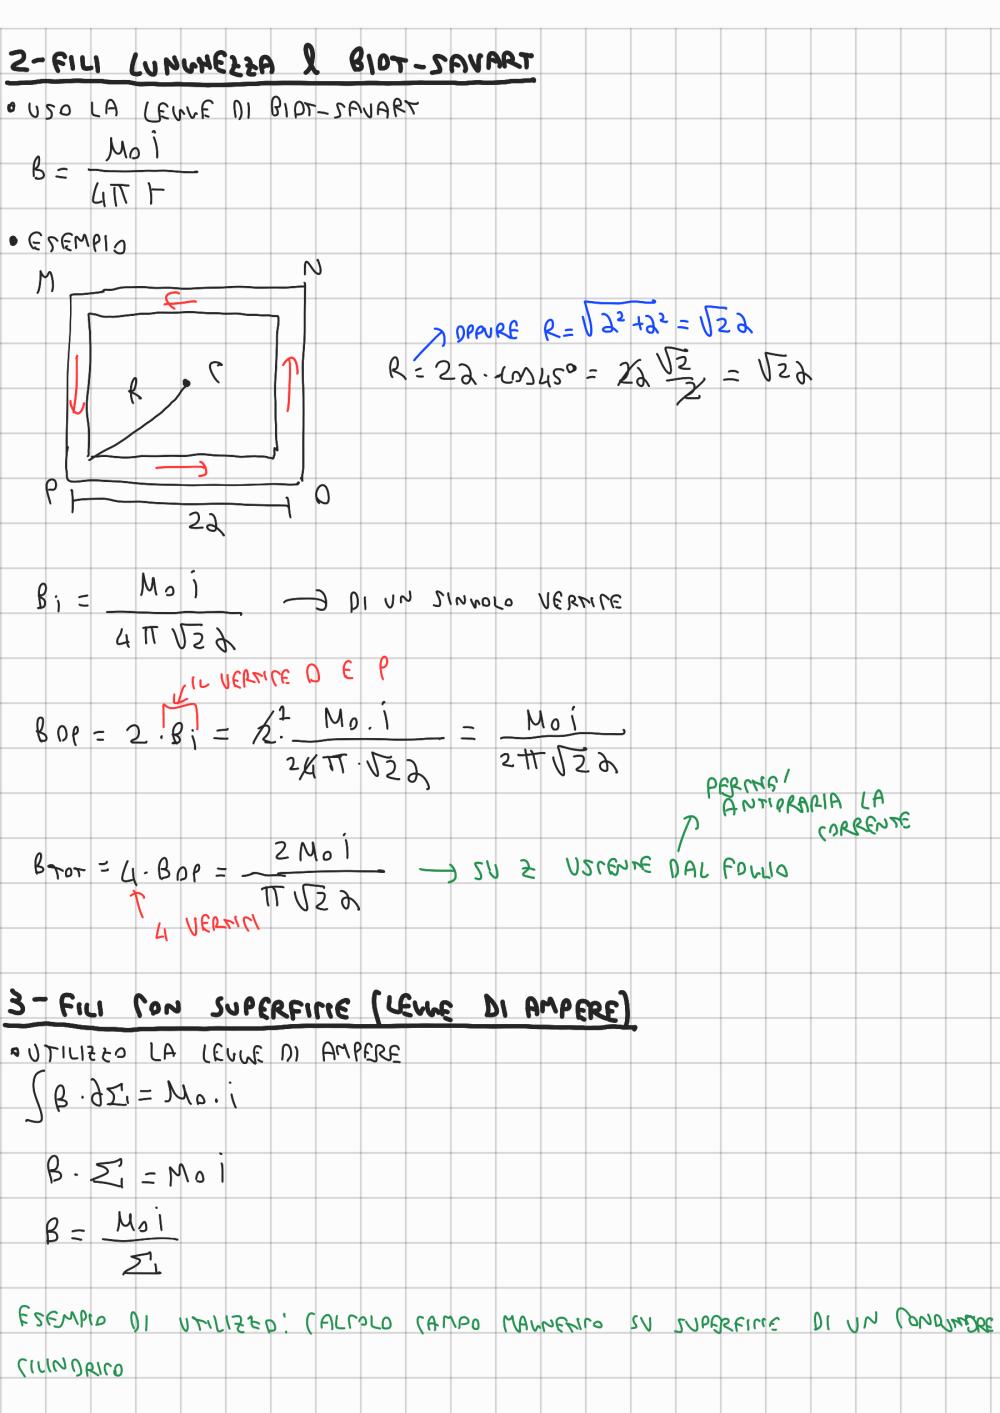 2-FILI LUNGHEZZA l BIOT-SAVART
• USO LA LEGGE DI BIOT-SAVART
B = μ₀ i / 4π r
• ESEMPIO
M N
OPPURE R = √(a² + a²) = √2 a
R = 2a · cos45° = 2a √2/2 = √2 a
R C
P O
2a
Bi = μ₀ i / 4π √2 a → DI UN SINGOLO VERTICE
IL VERTICE O E P
B OP = 2 · Bi = 2 · μ₀ · i / 4π · √2 a = μ₀ i / 2π √2 a
PERCHE'
ANTIORARIA LA
CORRENTE
B TOT = 4 · B OP = 2 μ₀ i / π √2 a → SU Z USCENTE DAL FOGLIO
4 VERTICI
3- FILI CON SUPERFICIE (LEGGE DI AMPERE)
• UTILIZZO LA LEGGE DI AMPERE
∫ B · dΣ = μ₀ · i
B · Σ = μ₀ i
B = μ₀ i / Σ
ESEMPIO DI UTILIZZO: CALCOLO CAMPO MAGNETICO SU SUPERFICIE DI UN CONDUTTORE
CILINDRICO